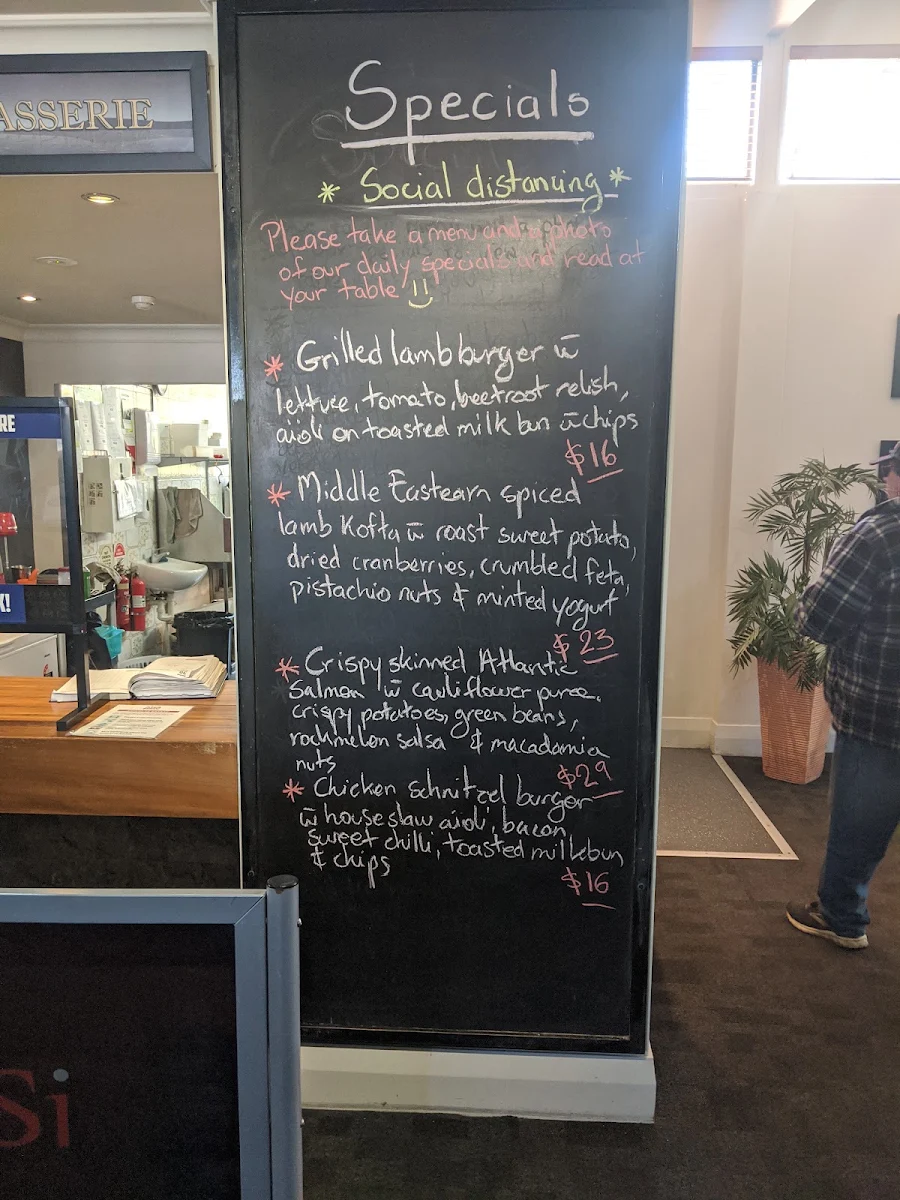 ASSERIE
Specials
* Social distancing *
Please take a menu and a photo
of our daily specials and read at
your table
* Grilled lamb burger w̄
lettuce, tomato, beetroot relish,
aioli on toasted milk bun w̄ chips
$16
* Middle Eastearn spiced
lamb Kofta w̄ roast sweet potato,
dried cranberries, crumbled feta,
pistachio nuts & minted yogurt
$23
* Crispy skinned Atlantic
Salmon w̄ cauliflower puree,
crispy potatoes, green beans,
rockmelon salsa & macadamia
nuts
$29
* Chicken schnitzel burger
w̄ house slaw aioli, bacon,
sweet chilli, toasted milkbun
& chips
$16
RE
K!
Si